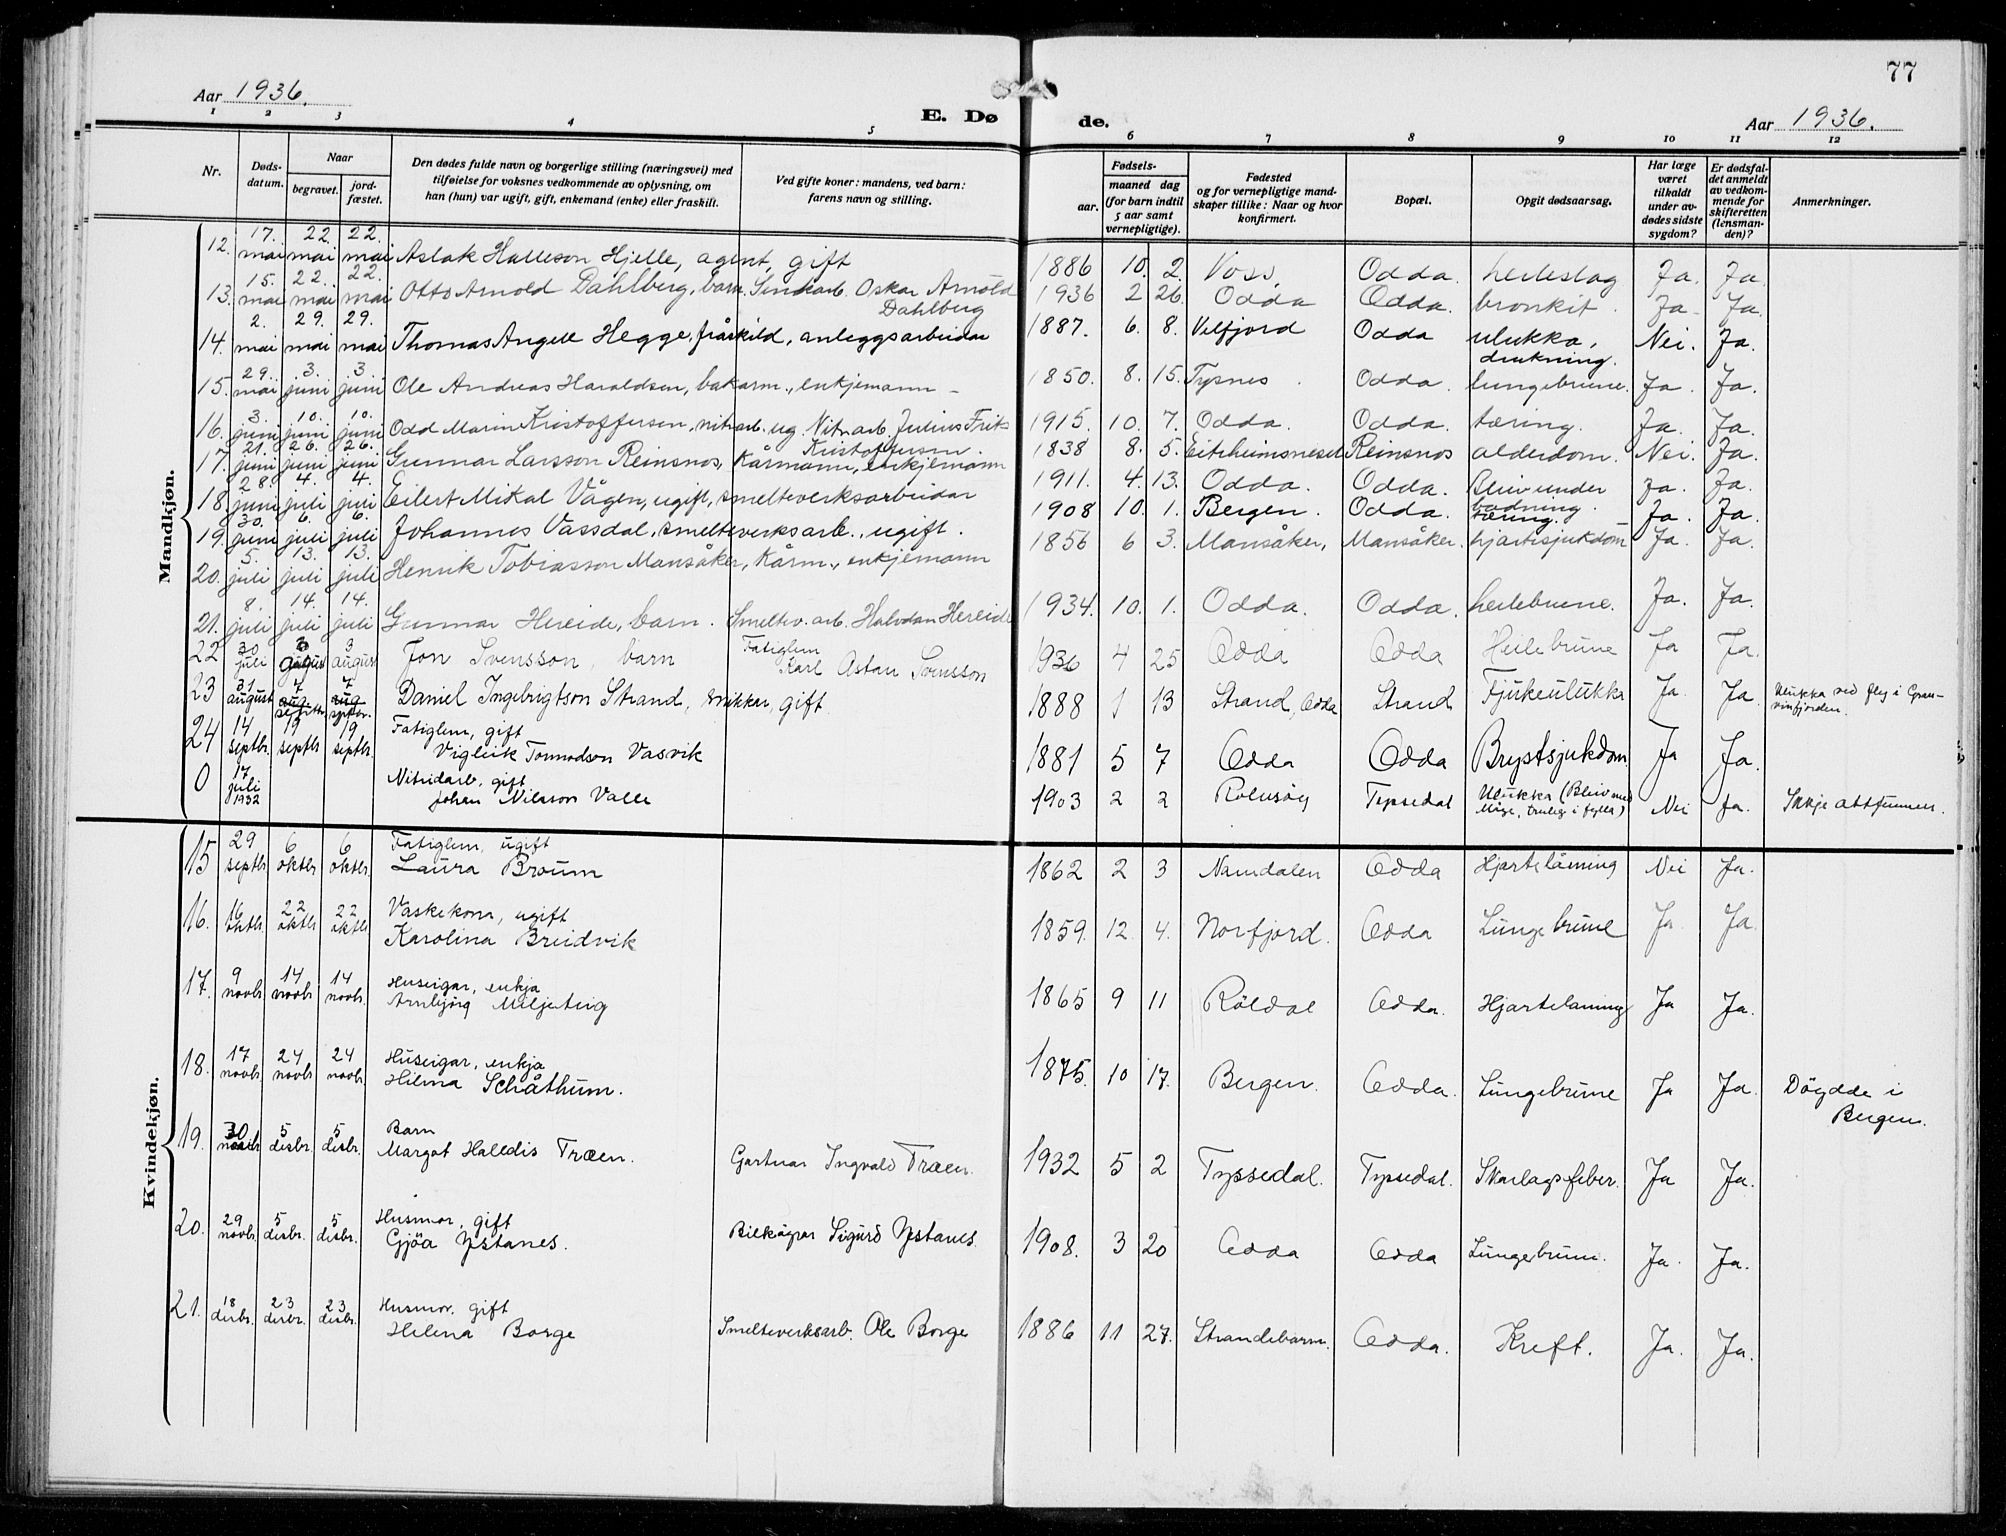 77
Aar 1936.
E. Dø
de.
Aar 1936.
1 2 3 4 5 6 7 8 9 10 11 12
Nr.
Døds-
datum.
Naar
begravet.
jord-
fæstet.
Den dødes fulde navn og borgerlige stilling (næringsvei) med
tilføielse for voksnes vedkommende av oplysning, om
han (hun) var ugift, gift, enkemand (enke) eller fraskilt.
Ved gifte koner: mandens, ved barn:
farens navn og stilling.
Fødsels-
aar.
maaned dag
(for barn indtil
5 aar samt
vernepligtige).
Fødested
og for vernepligtige mand-
skaper tillike: Naar og hvor
konfirmert.
Bopæl.
Opgit dødsaarsag.
Har læge
været
tilkaldt
under av-
dødes sidste
sygdom?
Er dødsfal-
det anmeldt
av vedkom-
mende for
skifteretten
(lensman-
den)?
Anmerkninger.
Mandkjøn.
12. 17. mai 22. mai 22. mai Aslak Halleson Hjelle, agent, gift 1886 10. 2. Voss. Odda. heileslag Ja. Ja.
13. 15. mai 22. mai 22. mai Otto Arnold Dahlberg, barn. Sinkarb. Oskar Arnold Dahlberg 1936 2 26. Odda Odda. bronkit. Ja. Ja.
14. 2. mai 29. mai 29. mai Thomas Angell Hegge, fråskild, anleggsarbeidar 1887. 6. 8. Velfjord Odda ulukka, drukning. Nei. Ja.
15. 29. mai 3. juni 3. juni Ole Andreas Haraldsen, bakarm., enkjemann 1850. 8. 15. Tysnes. Odda. lungebrune. Ja. Ja.
16. 3. juni 10. juni 10. juni Odd Marin Kristoffersen, nitrarb. ug. Nitrarb Julius Frits Kristoffersen. 1915. 10. 7. Odda. Odda. tæring. Ja. Ja.
17. 21. juni 26. juni 26. juni Gunnar Larsson Reinsnos, Kårmann, enkjemann 1838 8. 5. Eitrheimsneset Reinsnos alderdom. Nei. Ja.
18. 28. juni 4. juli 4. juli Eilert Mikal Vågen, ugift, smelteverksarbeidar 1911. 4. 13. Odda. Odda. Bleiv under badning. Ja. Ja.
19. 30. juni 6. juli 6. juli Johannes Vassdal, smelteverksarb., ugift. 1908 10. 1. Bergen. Odda. tæring. Ja. Ja.
20. 5. juli 13. juli 13. juli Henrik Tobiasson Mansåker, Kårm., enkjemann 1856 6 3. Mansåker, Mansåker. hjartesjukdom Ja. Ja.
21. 8. juli 14. juli 14. juli Gunnar Hereide, barn. Smeltev. arb. Halvdan Hereide 1934. 10. 1. Odda. Odda. heilebrune. Ja. Ja.
22 30 juli 3 august 3 august Jon Svensson, barn Fatiglem Karl Astan Svensson 1936 4 25 Odda Odda Heilebrune Ja Ja.
23 31 august 7 aug septbr. 7 aug septbr. Daniel Ingebrigtson Strand, snikkar, gift 1888 1 13 Strand, Odda Strand Fjukeulukka Ja. Ja. Ulukka ved fly i Gran-
vinfjorden.
24 14 septbr. 19 septbr 19 septbr. Fatiglem, gift
Vigleik Tormodson Vasvik 1881 5 7 Odda Odda Brystsjukdom Ja Ja.
0 17 juli 1932 Nitridarb, gift
Johan Nilsson Valle 1903 2 2 Tyssedal Ulukka (Bleiv med
, truleg i fylla) Nei Ja. Ikkje attfunnen.
Kvindekjøn.
15 29 septbr. 6 oktbr 6 oktbr. Fatiglem, ugift
Laura Broum 1862 2 3 Namdalen Odda Hjartelåming Nei Ja.
16. 16 oktbr. 22 oktbr 22 oktbr Vaskekona, ugift
Karolina Breidvik 1859. 12 4. Norfjord. Odda Lungebrune Ja. Ja.
17. 9 novbr. 14 novbr. 14 novbr. Huseigar, enkja
Arnbjörg Miljeteig 1865 9 11 Röldal Odda. Hjartelaming Ja Ja.
18. 17 novbr. 24 novbr. 24 novbr. Huseigar, enkja
Hilma Schåthum. 1875. 10 17. Bergen. Odda. Lungebrune Ja Ja. Döydde i
Bergen.
19. 30 novbr 5 desbr. 5 desbr. Barn
Margot Halldis Træen. Gartnar Ingvald Træen. 1932 5 2 Tyssedal. Tyssedal. Skarlagsfeber. Ja Ja.
20. 29 novbr. 5 desbr. 5 desbr. Husmor, gift
Gjöa Ystanes. Bilköyrar Sigurd Ystanes. 1908. 3 20 Odda Odda Lungebrune. Ja. Ja.
21. 18 desbr. 23 desbr. 23 desbr. Husmor, gift
Helena Borge Smelteverksarb. Ole Borge 1886 11 27. Strandebarm. Odda. Kreft. Ja. Ja.